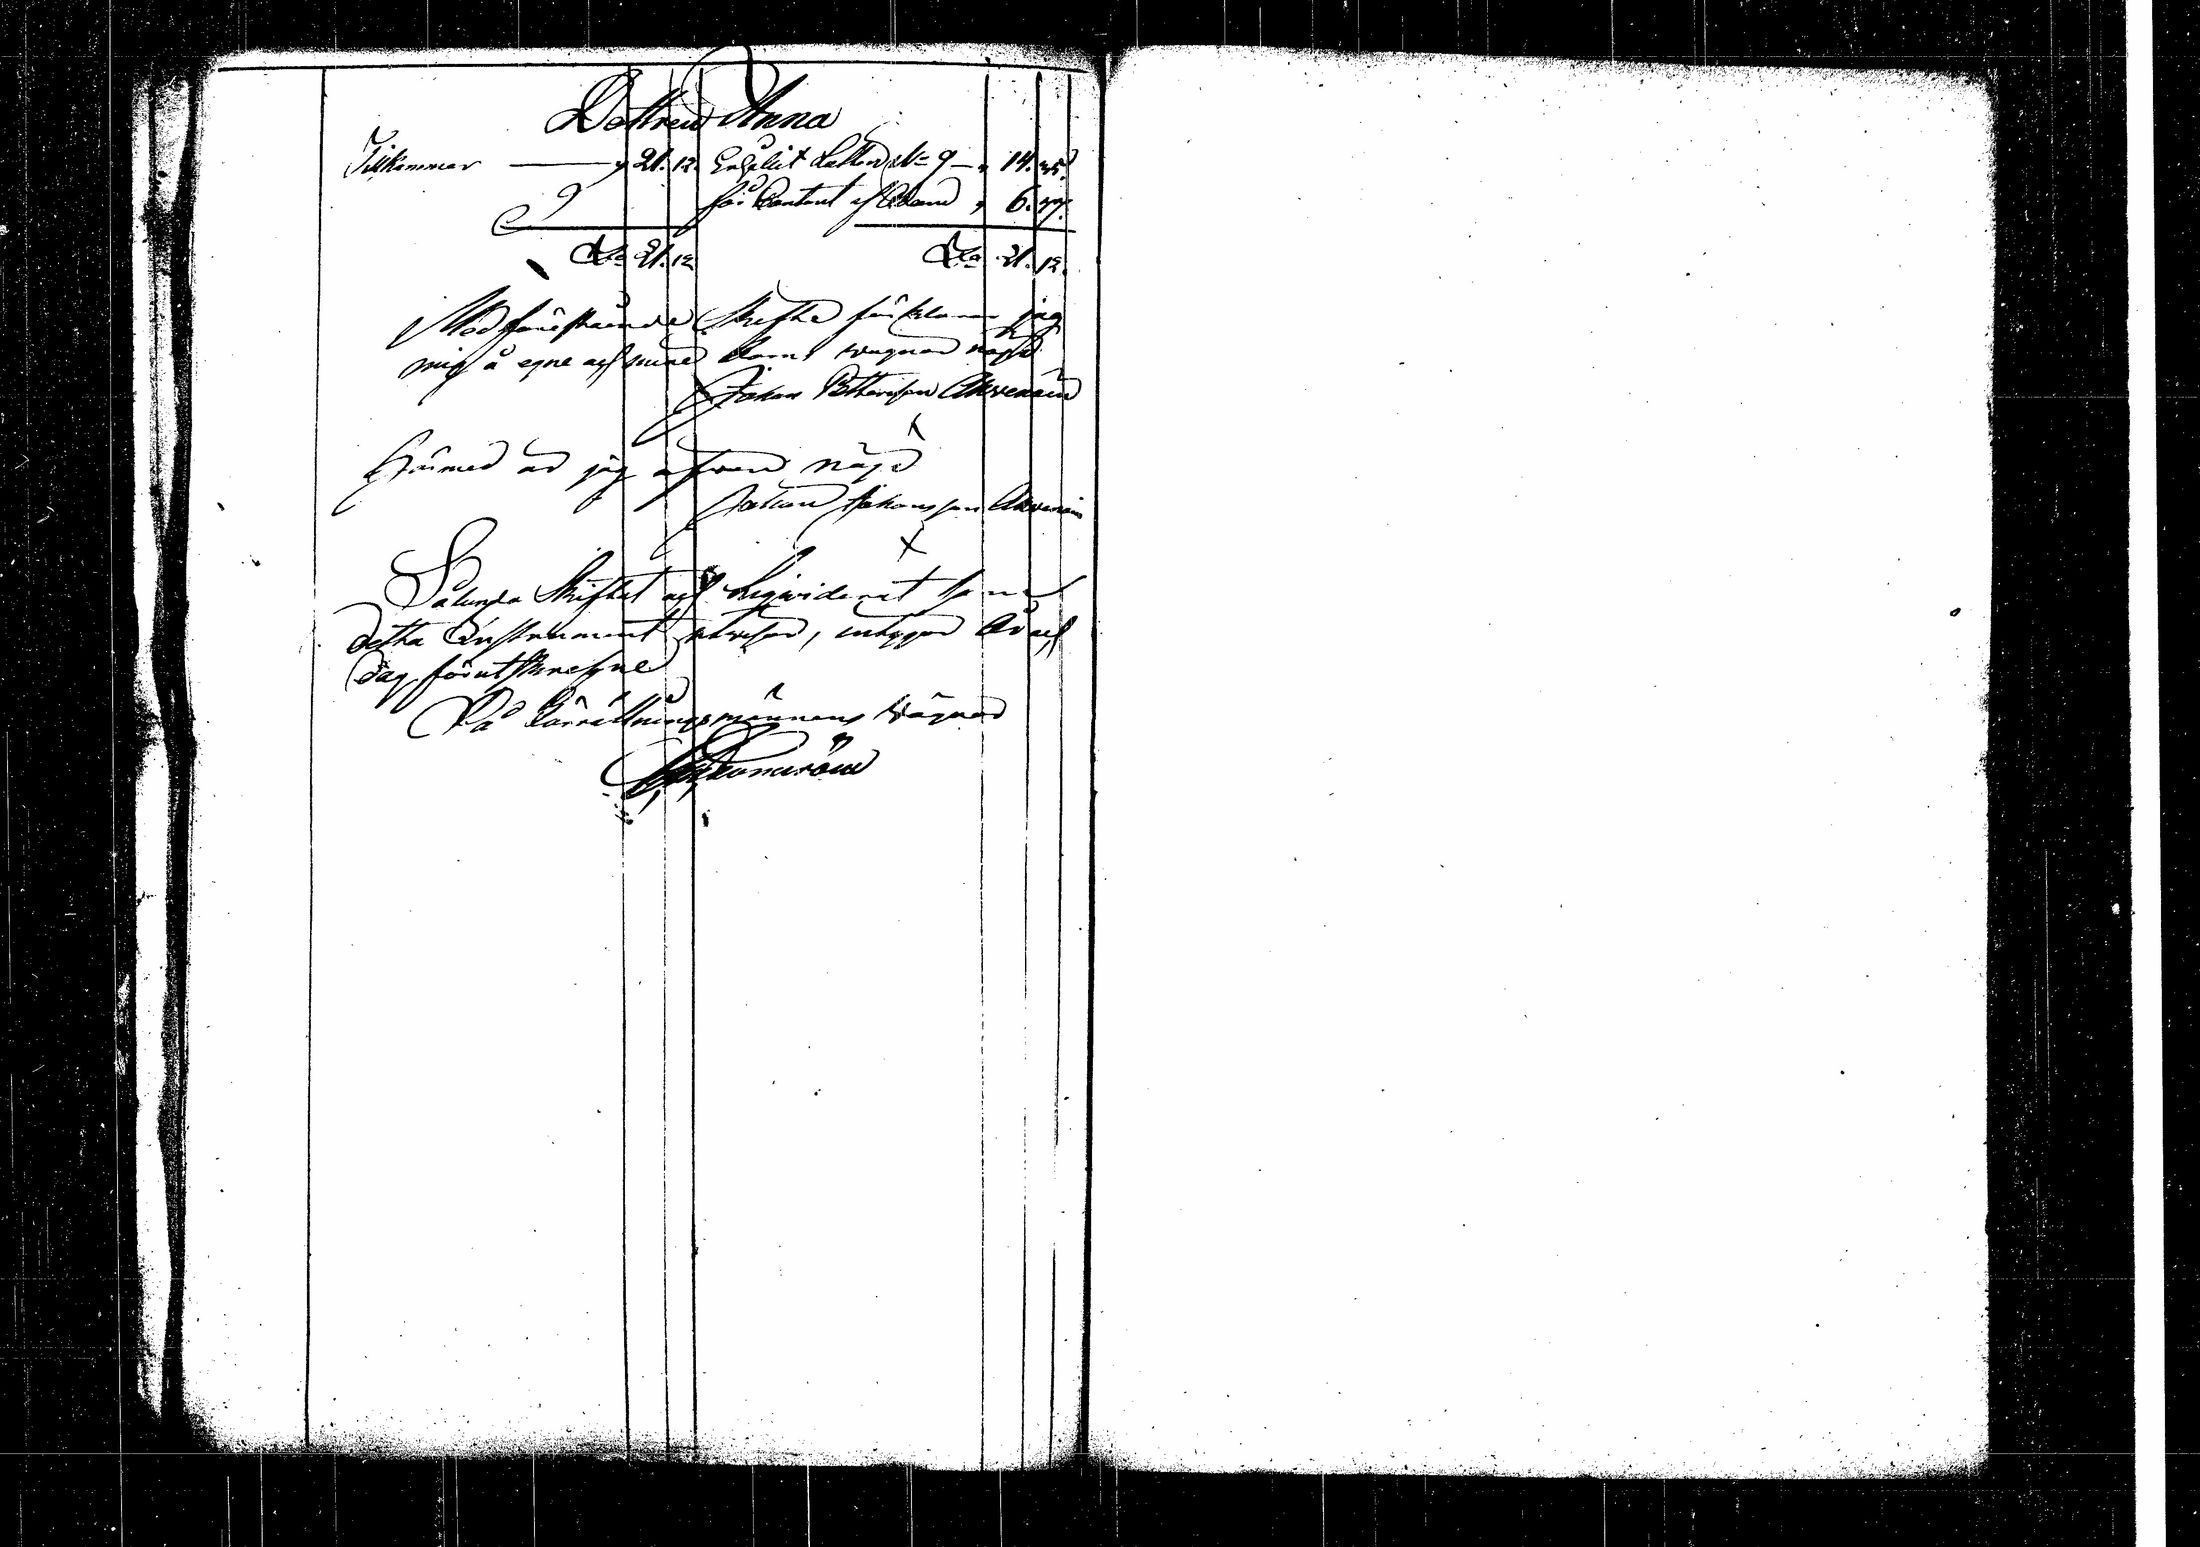 Dottren Anna
Tillkommer — " 21. 12. Enskilt Lotten No 9 — " 14. 35.
får Contant af " 6. 27.
S:a 21. 12 S:a 21. 12.
Med förestående Skifte förklarar jag
mig å egne och mine Barns wägnar nögd
Johan Pettersson
Härmed är jag äfwen nögd
Johan Johansson
Sålunda Skiftat och Liqwiderat som
detta Instrument utwisar, intygar År och
dag förutskrefne
På Förrättningsmännens wägnar